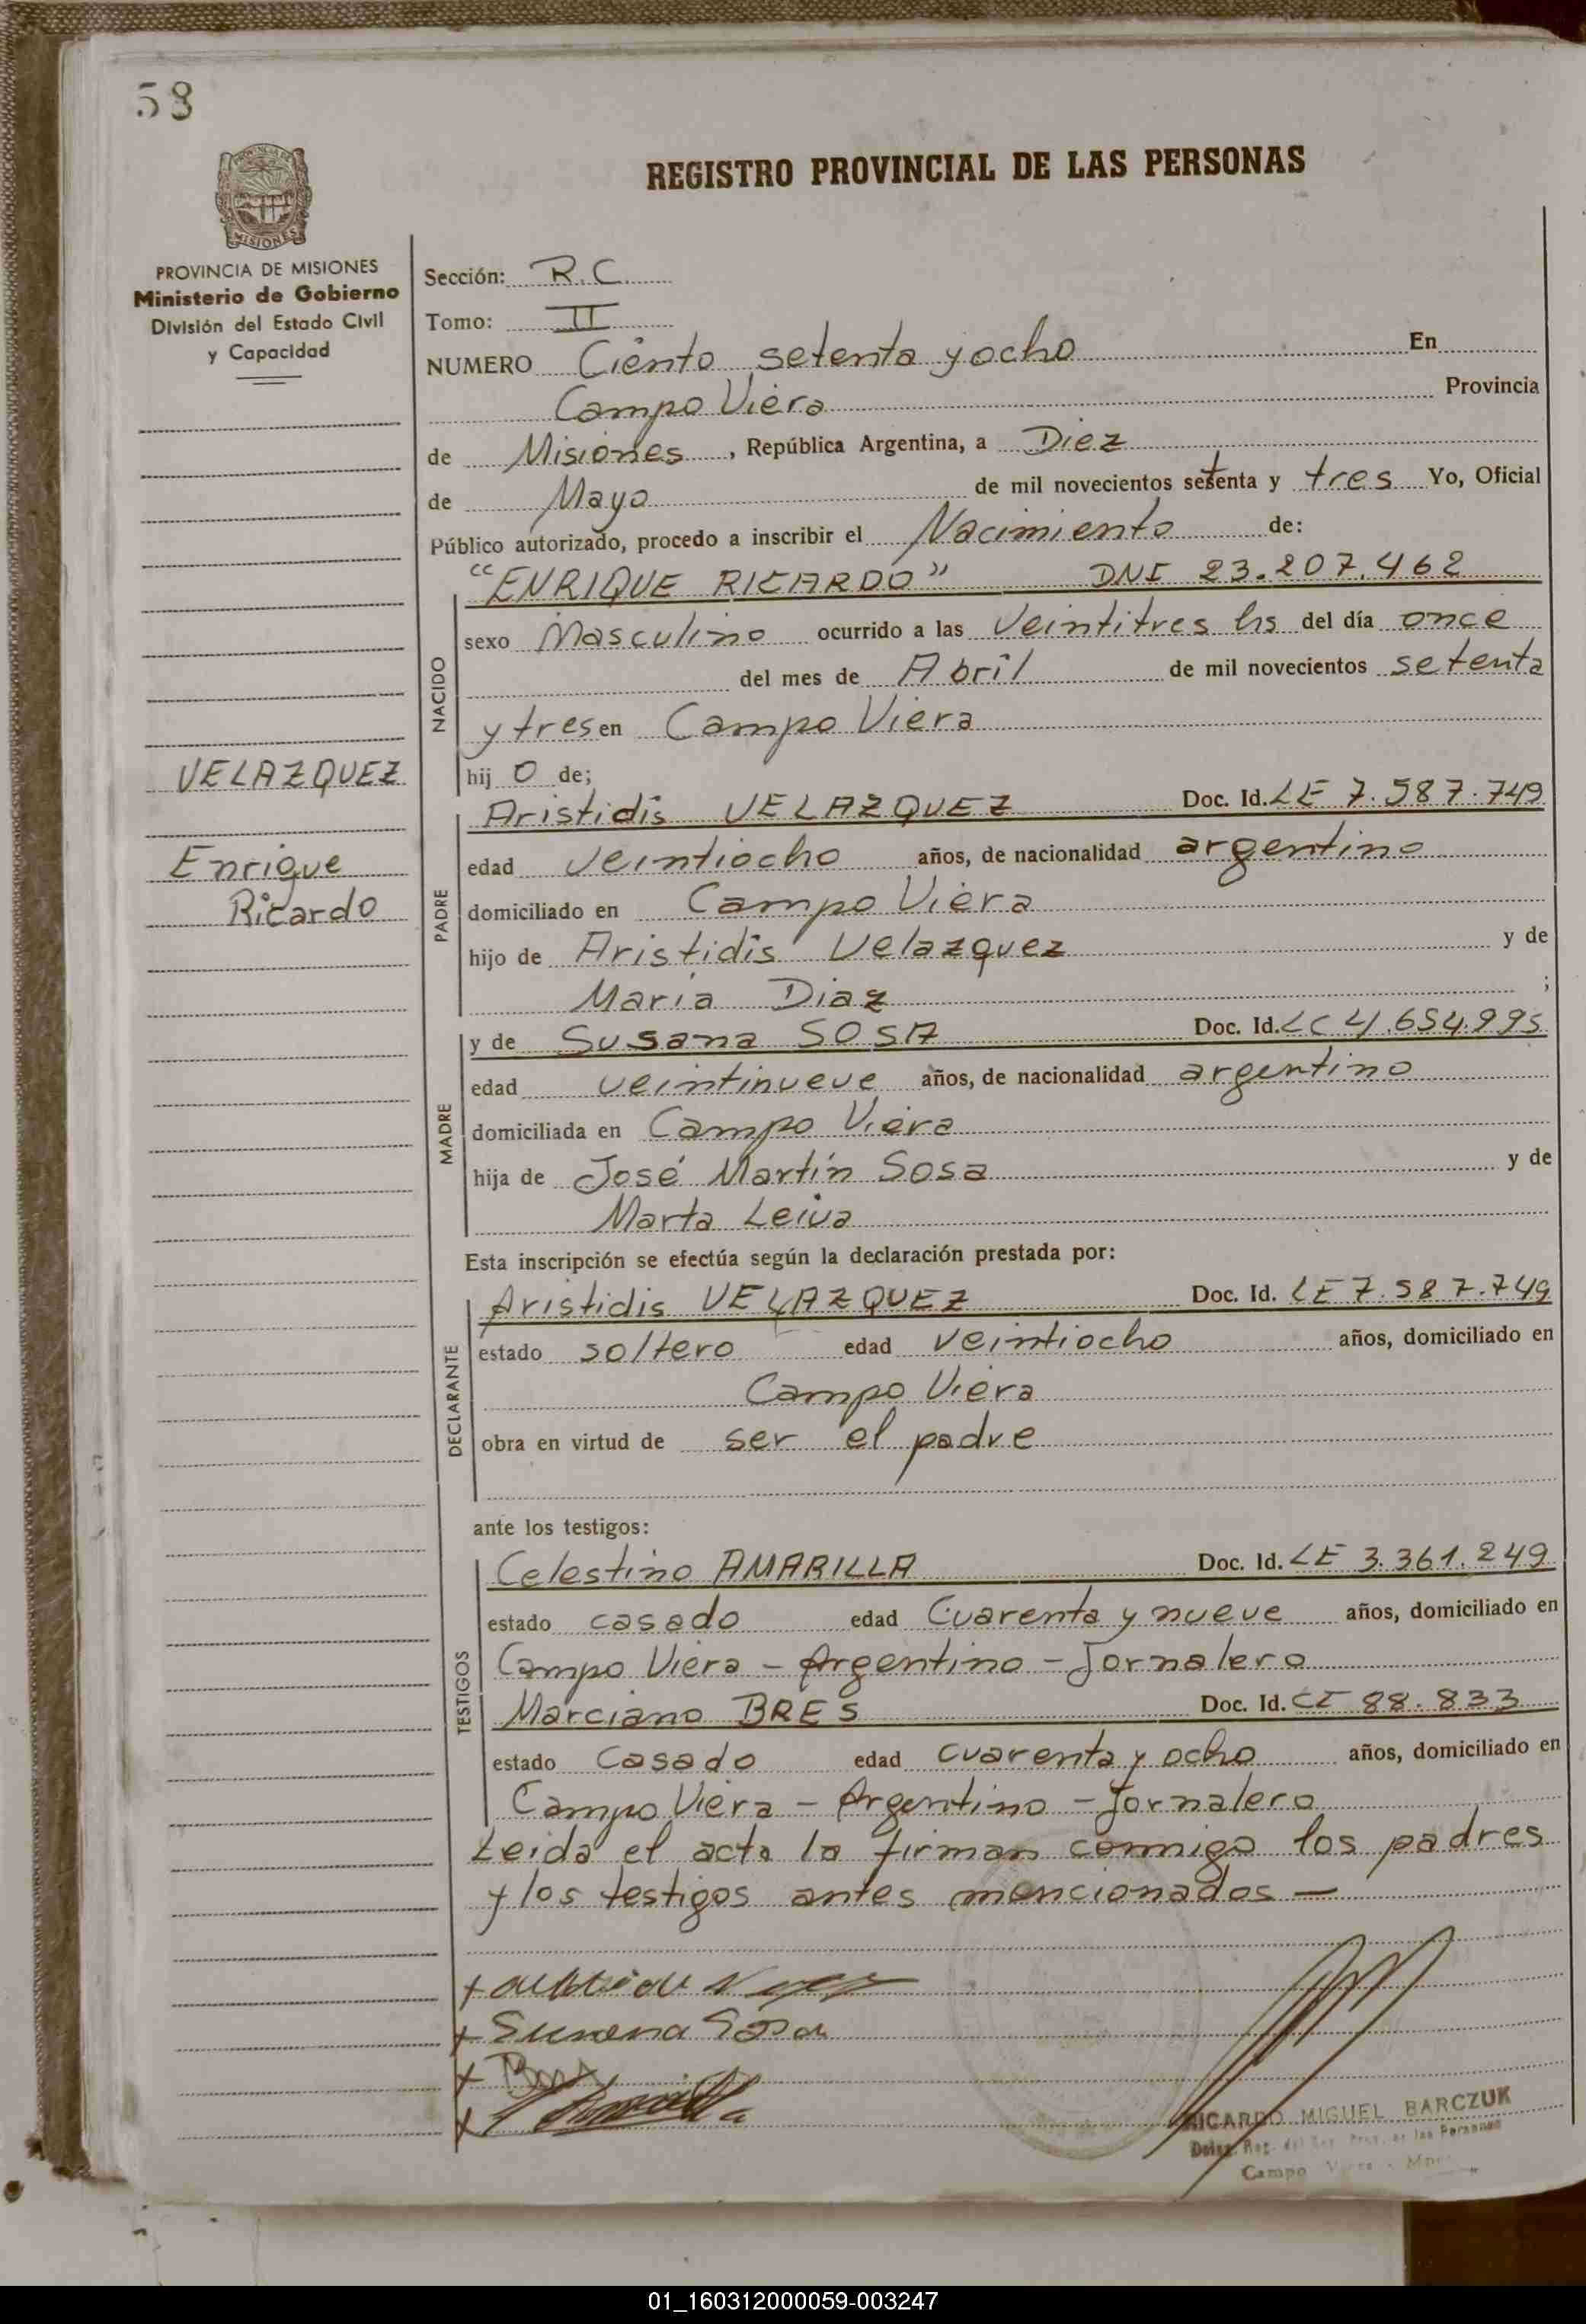 58
REGISTRO PROVINCIAL DE LAS PERSONAS
PROVINCIA DE MISIONES
MISIONES
PROVINCIA DE MISIONES
Ministerio de Gobierno
División del Estado Civil
y Capacidad
VELAZQUEZ
Enrique
Ricardo
Sección: R.C.
Tomo: II
NUMERO Ciento setenta y ocho En
Campo Viera Provincia
de Misiones, República Argentina, a Diez
de Mayo de mil novecientos setenta y tres Yo, Oficial
Público autorizado, procedo a inscribir el Nacimiento de:
"ENRIQUE RICARDO" DNI 23.207.462
NACIDO
sexo Masculino ocurrido a las Veintitres hs del día once
del mes de Abril de mil novecientos setenta
y tres en Campo Viera
hij o de;
PADRE
Aristidis VELAZQUEZ Doc. Id. LE 7.587.749
edad veintiocho años, de nacionalidad argentino
domiciliado en Campo Viera
hijo de Aristidis Velazquez y de
Maria Diaz ;
MADRE
y de Susana SOSA Doc. Id. LC 4.654.995
edad veintinueve años, de nacionalidad argentino
domiciliada en Campo Viera
hija de José Martín Sosa y de
Marta Leiva
Esta inscripción se efectúa según la declaración prestada por:
DECLARANTE
Aristidis VELAZQUEZ Doc. Id. LE 7.587.749
estado soltero edad veintiocho años, domiciliado en
Campo Viera
obra en virtud de ser el padre
ante los testigos:
TESTIGOS
Celestino AMARILLA Doc. Id. LE 3.361.249
estado casado edad Cuarenta y nueve años, domiciliado en
Campo Viera - Argentino - Jornalero
Marciano BRES Doc. Id. CI 88.833
estado Casado edad cuarenta y ocho años, domiciliado en
Campo Viera - Argentino - Jornalero
Leida el acta la firman conmigo los padres
y los testigos antes mencionados —
+
+ Susana Sosa
+
+
RICARDO MIGUEL BARCZUK
de las Personas
Campo Viera - Mnes.
01_160312000059-003247